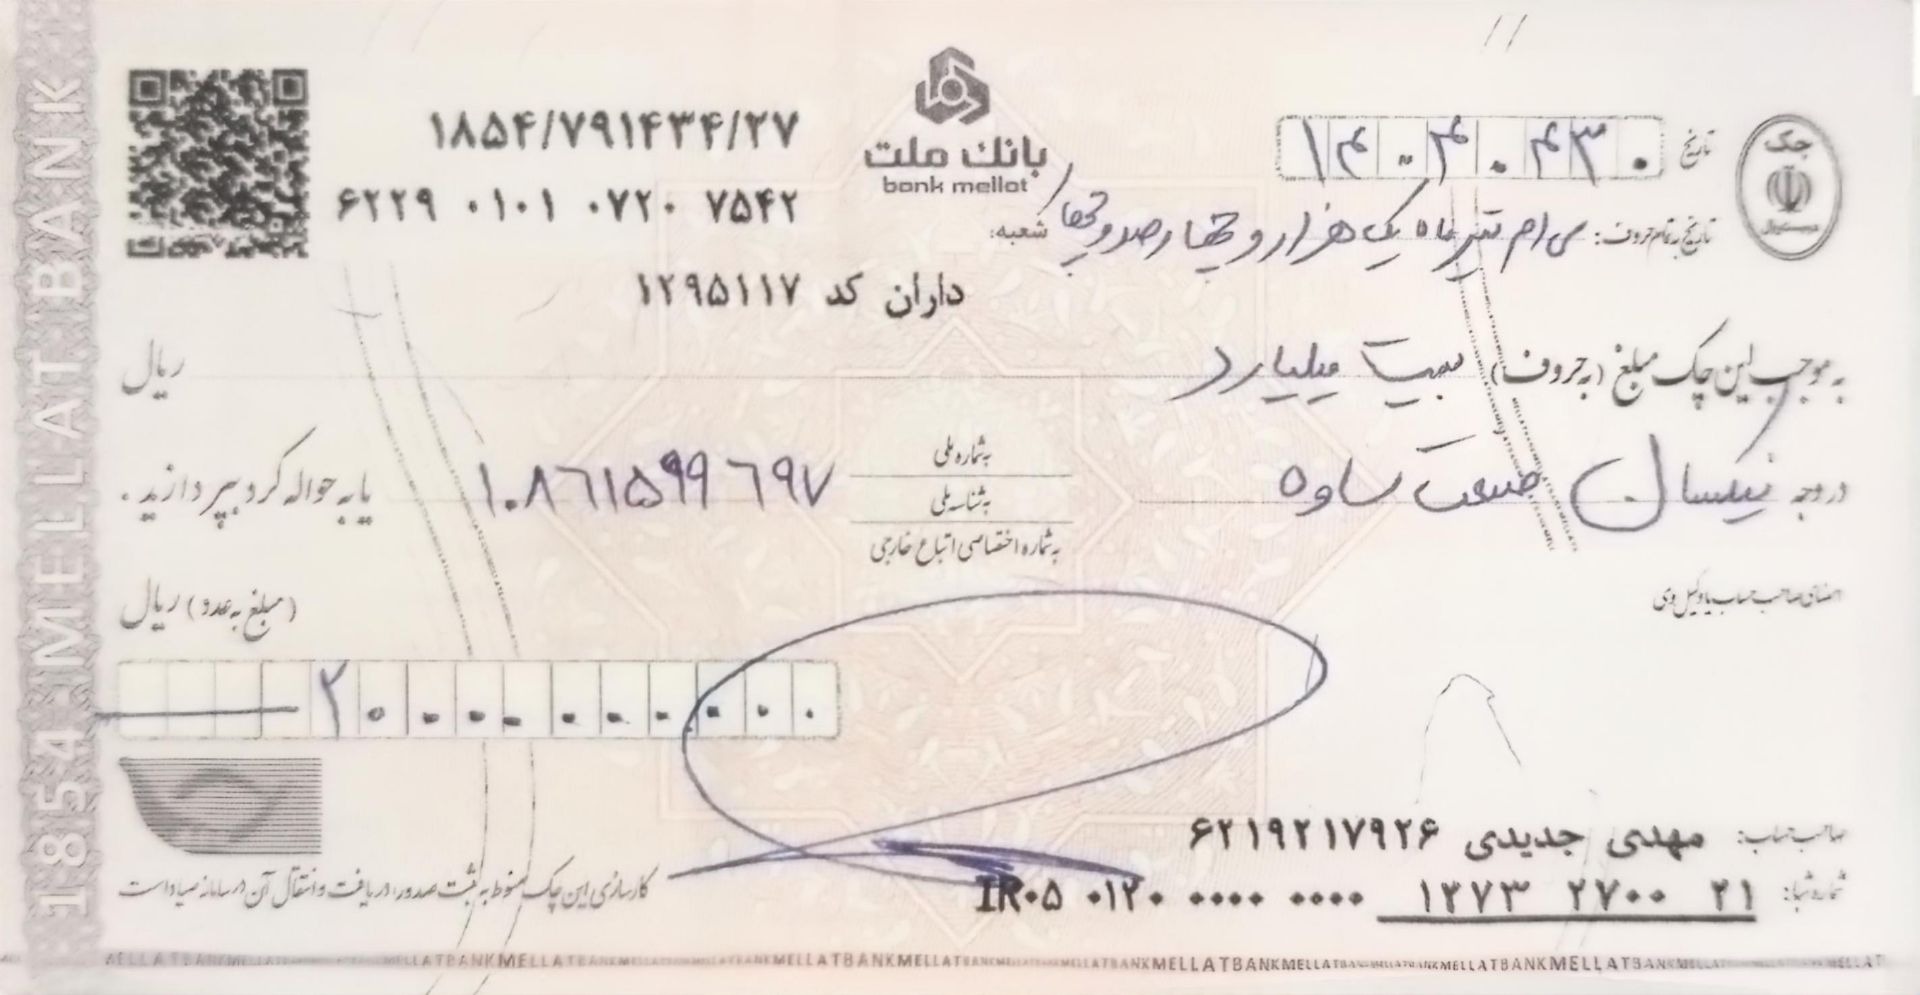 بانک ملت
bank mellat
چک
۱۸۵۴/۷۹۱۴۳۴/۲۷
۶۲۲۹ ۰۱۰۱ ۰۷۲۰ ۷۵۴۲
تاریخ
تاریخ به تمام حروف: سی ام تیر ماه یک هزار و چهارصد و چهار
شعبه:
داران کد ۱۲۹۵۱۱۷
به موجب این چک مبلغ (به حروف) بیست میلیارد ریال
در وجه نیسان صنعت ساوه
به شماره ملی
به شناسه ملی
به شماره اختصاصی اتباع خارجی
۱۰۸۶۱۵۹۹۶۹۷ یا به حواله کرد بپردازید.
امضای صاحب حساب یا وکیل وی
(مبلغ به عدد) ریال
۲۰۰۰۰۰۰۰۰۰۰
صاحب حساب: مهدی جدیدی ۶۲۱۹۲۱۷۹۲۶
شماره شبا: IR۰۵ ۰۱۲۰ ۰۰۰۰ ۰۰۰۰ ۱۲۷۳ ۲۷۰۰ ۲۱
کارسازی این چک منوط به ثبت صدور، دریافت و انتقال آن در سامانه صیاد است
1854 MELLAT BANK